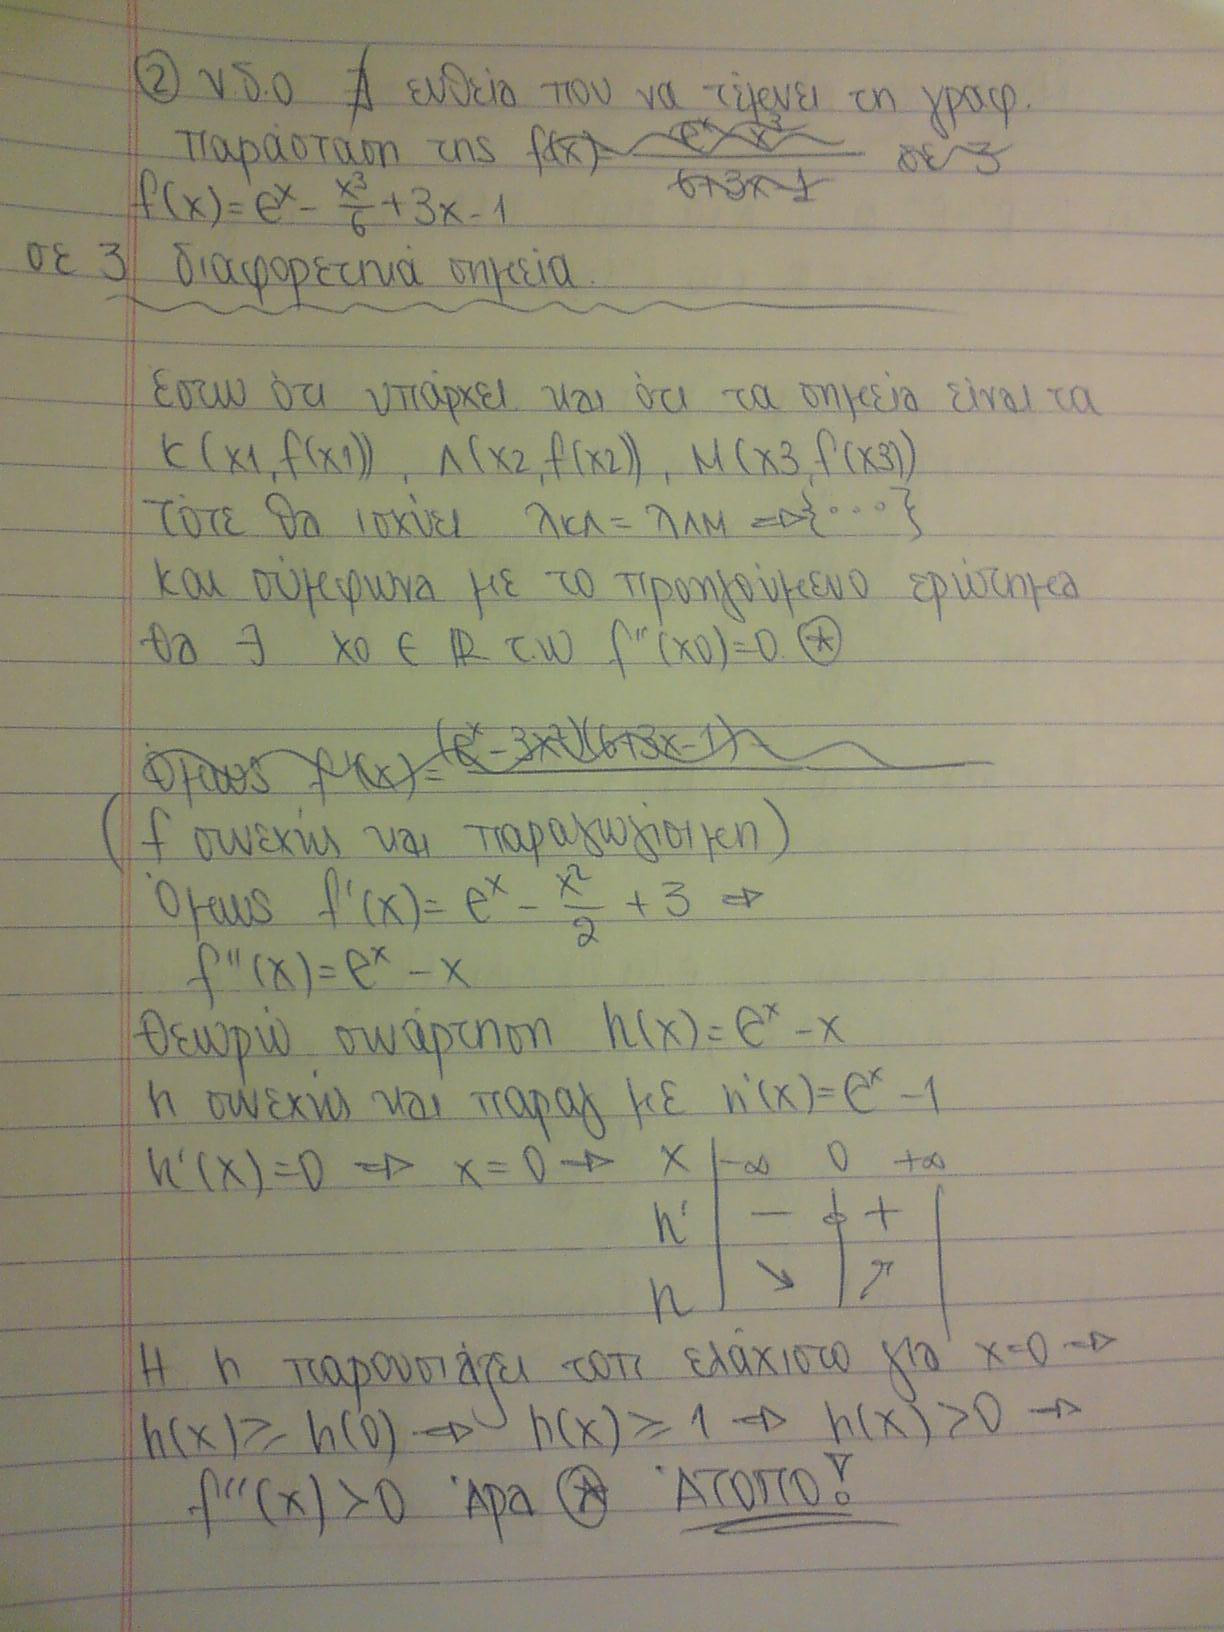 ② ν.δ.ο ∄ ευθεία που να τέμνει τη γραφ.
παράσταση της f(x)= e^x x^3 / 6+3x-1 σε 3
f(x)=e^x - x^3/6 +3x-1
σε 3 διαφορετικά σημεία.
Έστω ότι υπάρχει και ότι τα σημεία είναι τα
Κ(x1,f(x1)), Λ(x2,f(x2)), Μ(x3,f(x3))
Τότε θα ισχύει λΚΛ=λΛΜ ⇒{...}
και σύμφωνα με το προηγούμενο ερώτημα
θα ∃ x0 ∈ ℝ τ.ω f''(x0)=0. ⊛
Όμως f'(x)= (e^x-3x^2)(6+3x-1)-
(f συνεχής και παραγωγίσιμη)
Όμως f'(x)= e^x - x^2/2 +3 ⇒
f''(x)=e^x -x
Θεωρώ συνάρτηση h(x)=e^x -x
h συνεχής και παραγ με h'(x)=e^x -1
h'(x)=0 ⇒ x=0 ⇒ x -∞ 0 +∞
h' - 0 +
h ↘ ↗
Η h παρουσιάζει τοπι ελάχιστο για x=0 ⇒
h(x)≥ h(0) ⇒ h(x)≥1 ⇒ h(x)>0 ⇒
f''(x)>0 Άρα ⊛ ΆΤΟΠΟ!